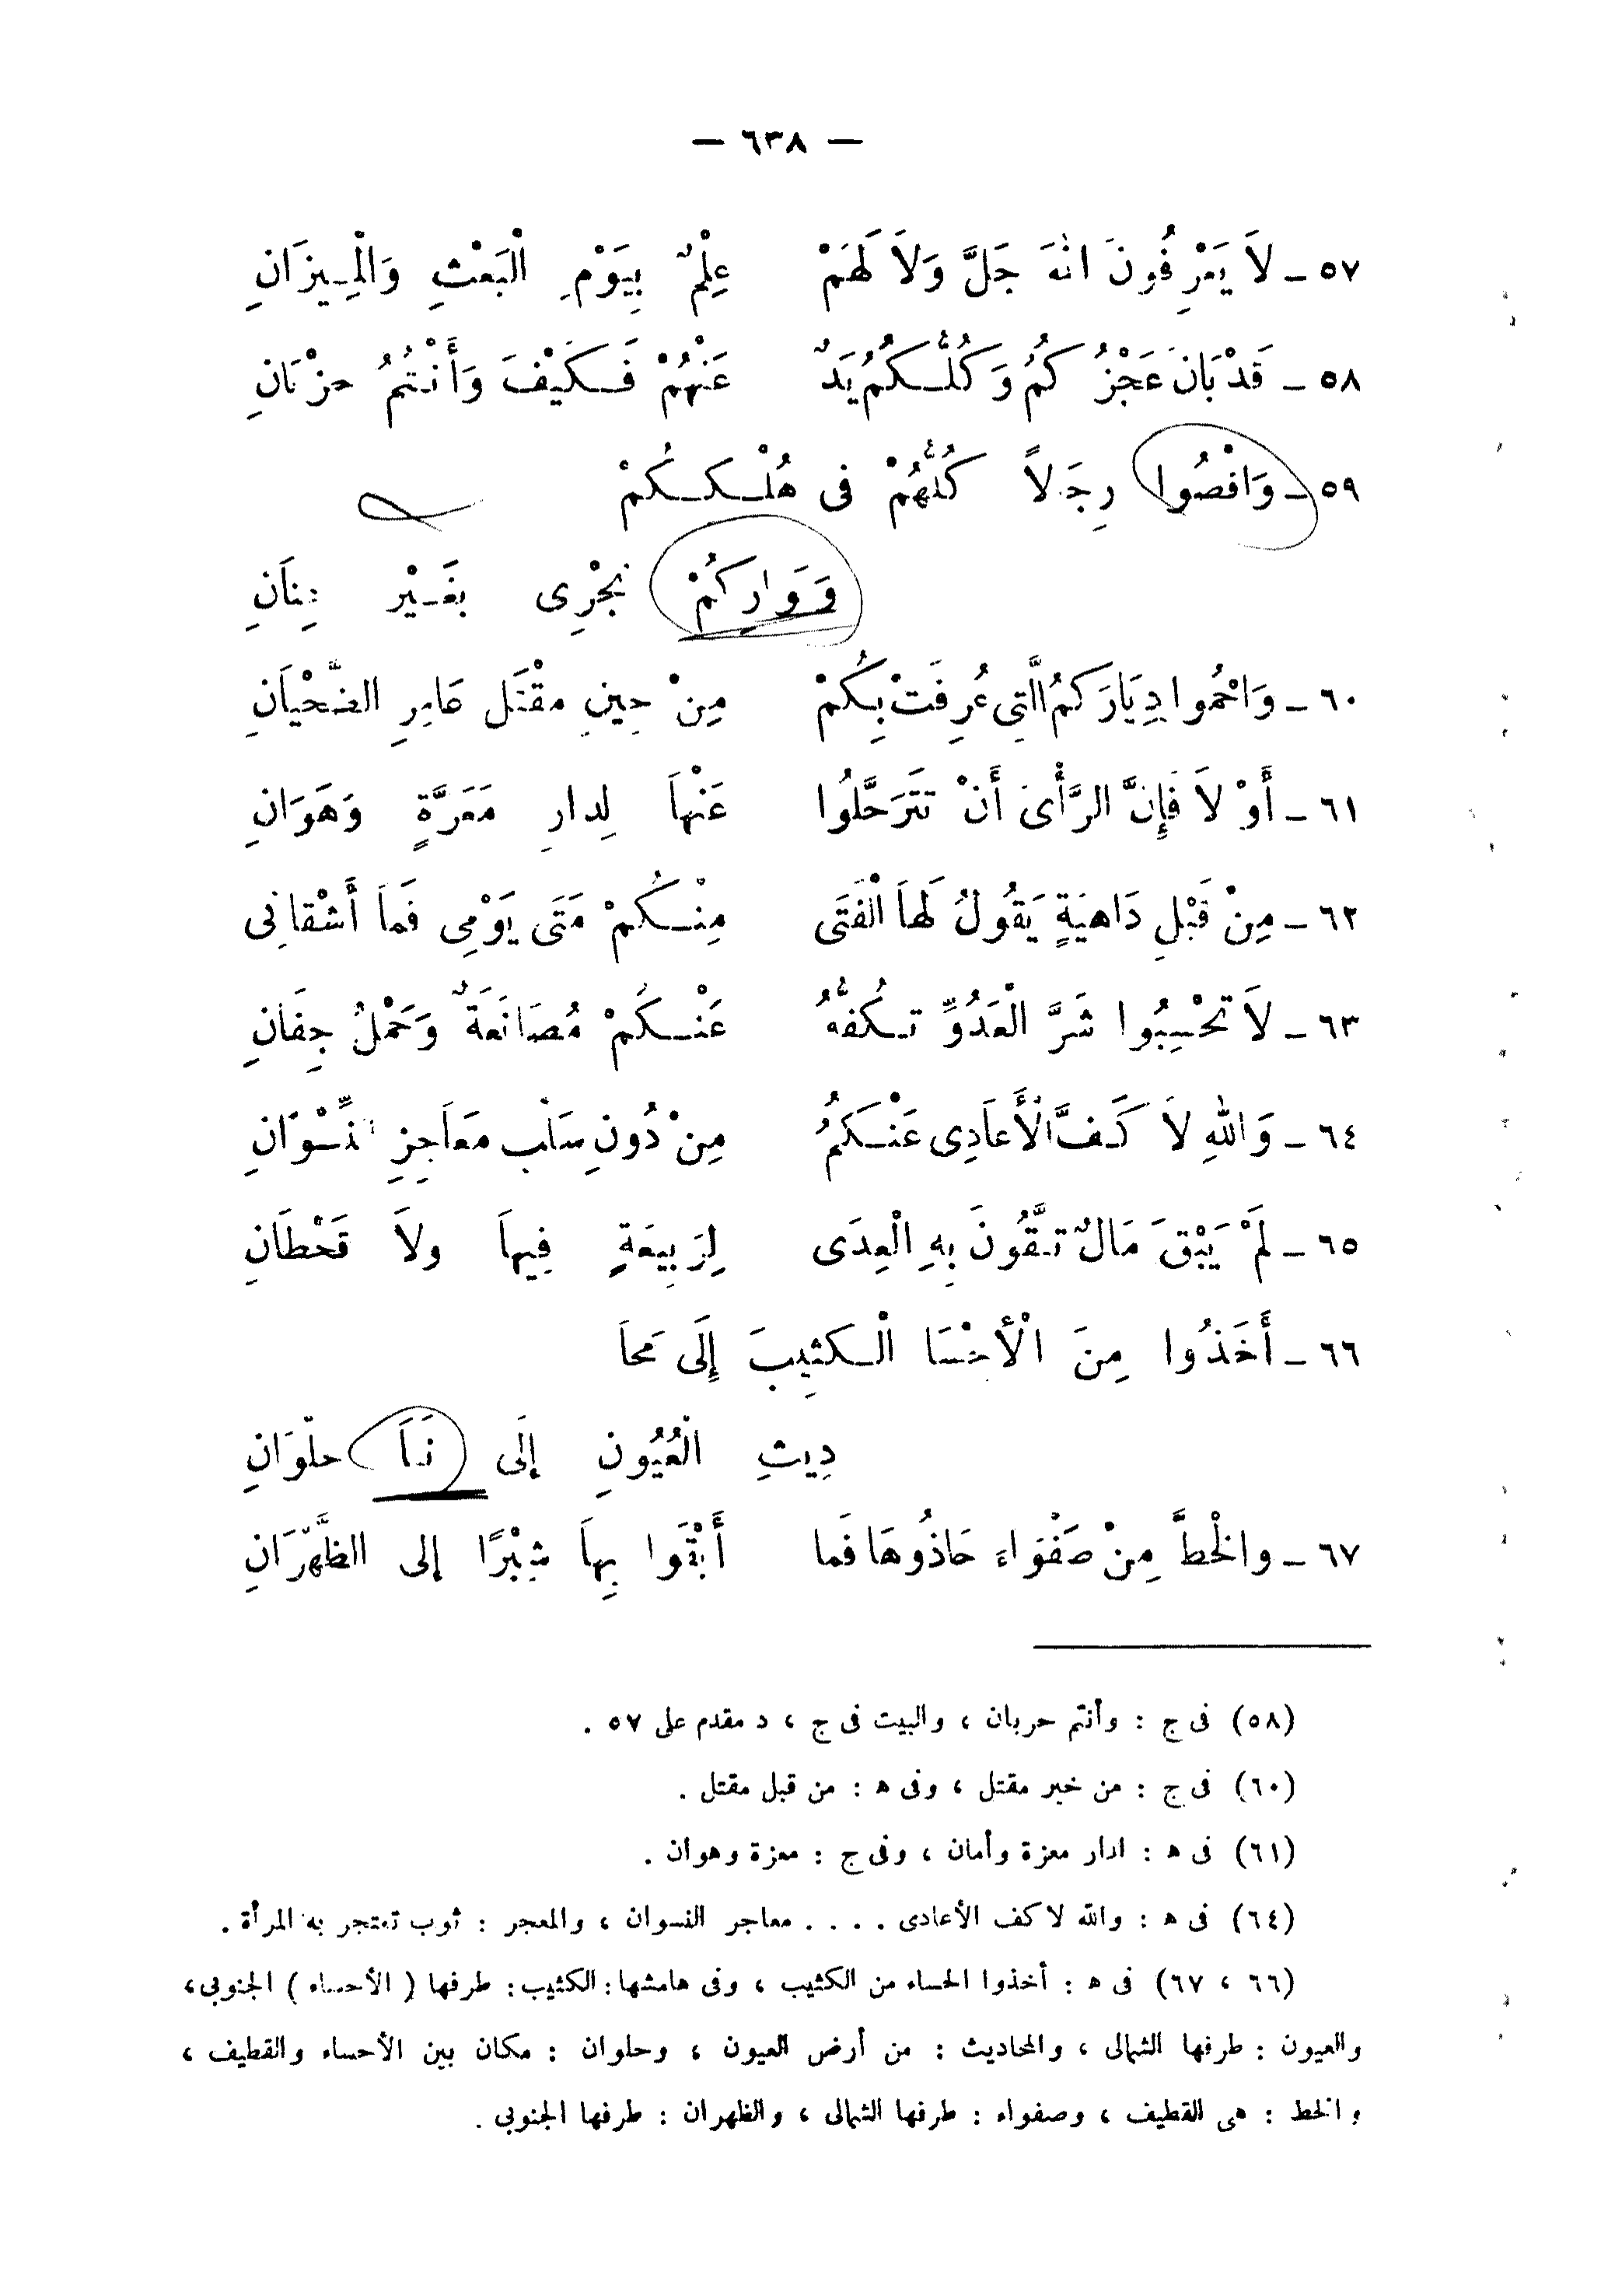 — ٦٣٨ —
٥٧ – لاَ يَعْرِفُونَ اللهَ جَلَّ وَلاَ لَهُمْ عِلْمٌ بِيَوْمِ الْبَعْثِ وَالْمِيزَانِ
٥٨ – قَدْ بَانَ عَجْزُكُمُ وَكُلُّكُمُ يَدٌ عَنْهُمْ فَكَيْفَ وَأَنْتُمُ حِزْبَانِ
٥٩ – وَاقْصُوا رِجَالاً كُلُّهُمْ فى هُلْكِكُمْ
وَوَارِكُمْ تَجْرِى بِغَيْرِ عِنَانِ
٦٠ – وَاحْمُوا دِيَارَكُمُ الَّتِى عُرِفَتْ بِكُمْ مِنْ حِينِ مَقْتَلِ عَامِرِ الضَّحْيَانِ
٦١ – أَوْ لاَ فَإِنَّ الرَّأْىَ أَنْ تَتَرَحَّلُوا عَنْهاَ لِدارِ مَعَرَّةٍ وَهَوَانِ
٦٢ – مِنْ قَبْلِ دَاهِيَةٍ يَقُولُ لَهاَ الْفَتَى مِنْكُمْ مَتَى يَوْمِى فَماَ أَشْقانِى
٦٣ – لاَ تَحْسِبُوا شَرَّ الْعَدُوِّ تَكُفُّهُ عَنْكُمْ مُصَانَعَةٌ وَحَمْلُ جِفَانِ
٦٤ – وَاللهِ لاَ كَفَّ الْأَعَادِى عَنْكُمُ مِنْ دُونِ سَلْبِ مَعَاجِزِ النِّسْوَانِ
٦٥ – لَمْ يَبْقَ مَالٌ تَتَّقُونَ بِهِ الْعِدَى لِرَبِيعَةٍ فِيهاَ ولاَ قَحْطَانِ
٦٦ – أَخَذُوا مِنَ الْأَحْسَا الْكَثِيبَ إِلَى مَحاَ
دِيثِ الْعُيُونِ إِلَى نَقاَ حلْوَانِ
٦٧ – والْخَطَّ مِنْ صَفْوَاءَ حَاذُوهَا فَما أَبْقَوا بِهاَ شِبْرًا إلى الظَّهْرَانِ
(٥٨) فى ج : وأنتم حربان ، والبيت فى ج ، د مقدم على ٥٧ .
(٦٠) فى ج : من خير مقتل ، وفى ه : من قبل مقتل .
(٦١) فى ه : لدار معزة وأمان ، وفى ج : معزة وهوان .
(٦٤) فى ه : والله لا كف الأعادى . . . . معاجر النسوان ، والمعجر : ثوب تعتجر به المرأة .
(٦٦ ، ٦٧) فى ه : أخذوا الحساء من الكثيب ، وفى هامشها : الكثيب : طرفها ( الأحساء ) الجنوبى ،
والعيون : طرفها الشمالى ، والمحاديث : من أرض العيون ، وحلوان : مكان بين الأحساء والقطيف ،
والخط : هى القطيف ، وصفواء : طرفها الشمالى ، والظهران : طرفها الجنوبى .